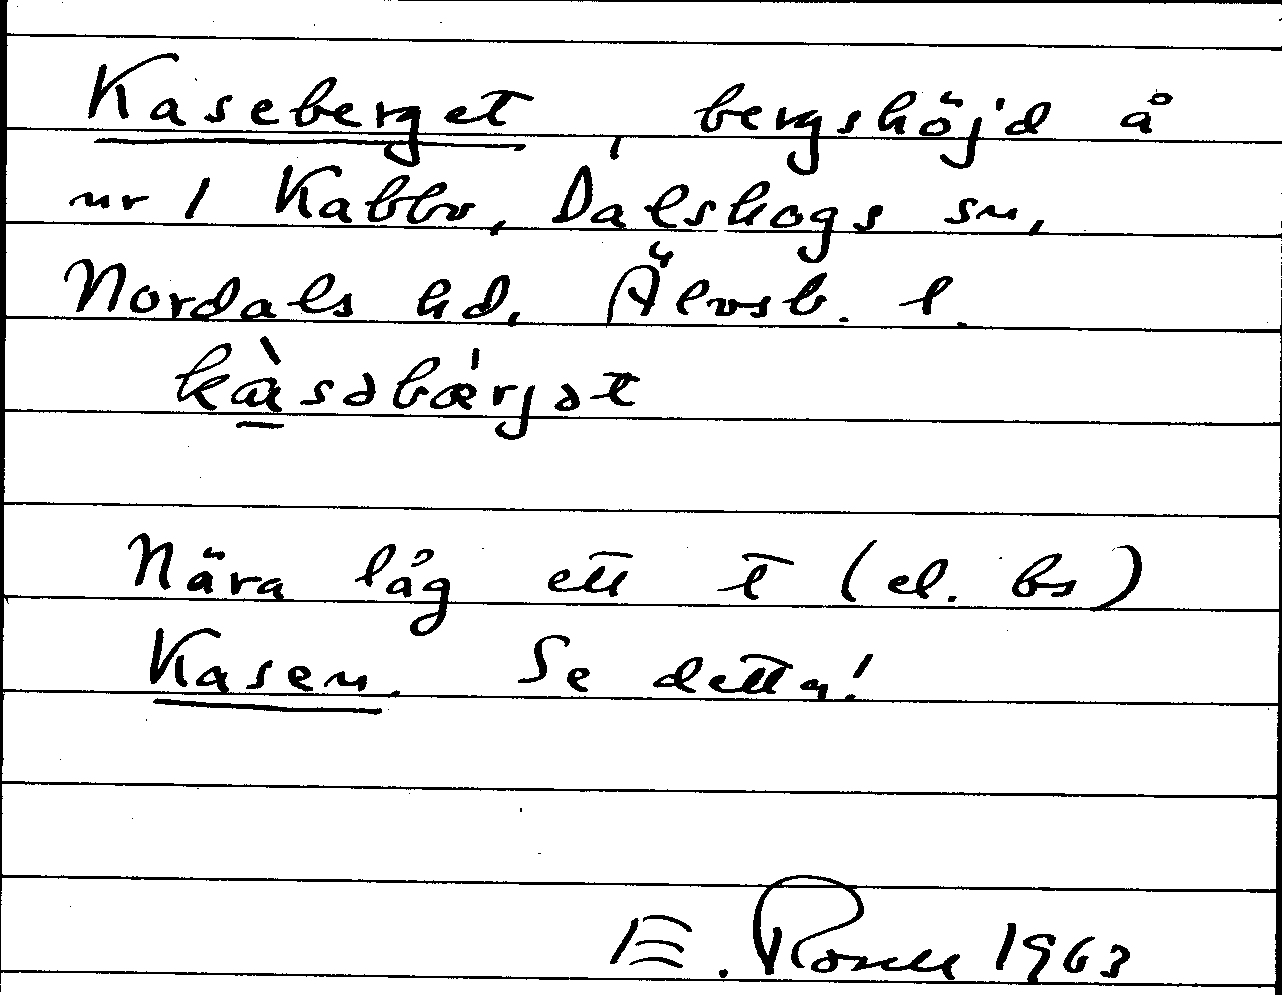 Kaseberget, bergshöjd å
nr 1 Kabbo, Dalskogs sn,
Nordals hd, Älvsb. l.
kàsəbæ̀rjət
Nära låg ett t (el. bs)
Kasen. Se detta!
E. 1963